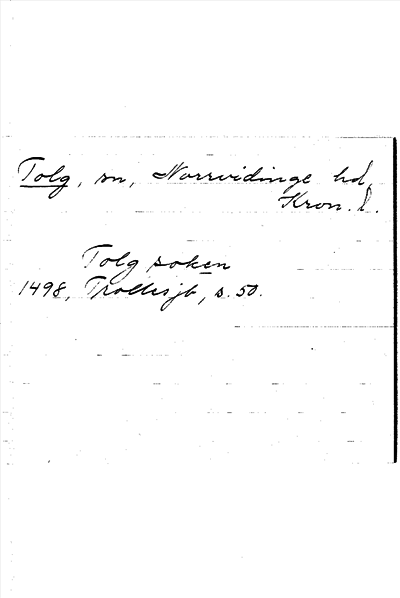 Tolg, sn, Norrvidinge hd,
Kron. l.
Tolg soken
1498, Trollesjb, s. 50.